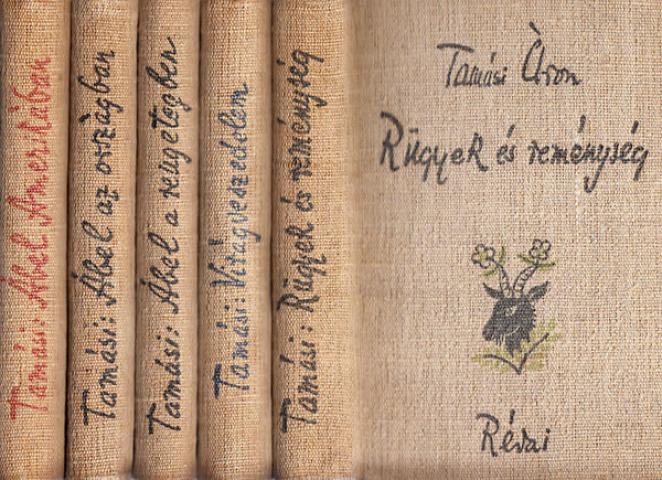 Tamási: Ábel Amerikában
Tamási: Ábel az országban
Tamási: Ábel a rengetegben
Tamási: Virágveszedelem
Tamási: Rügyek és reménység
Tamási Áron
Rügyek és reménység
Révai